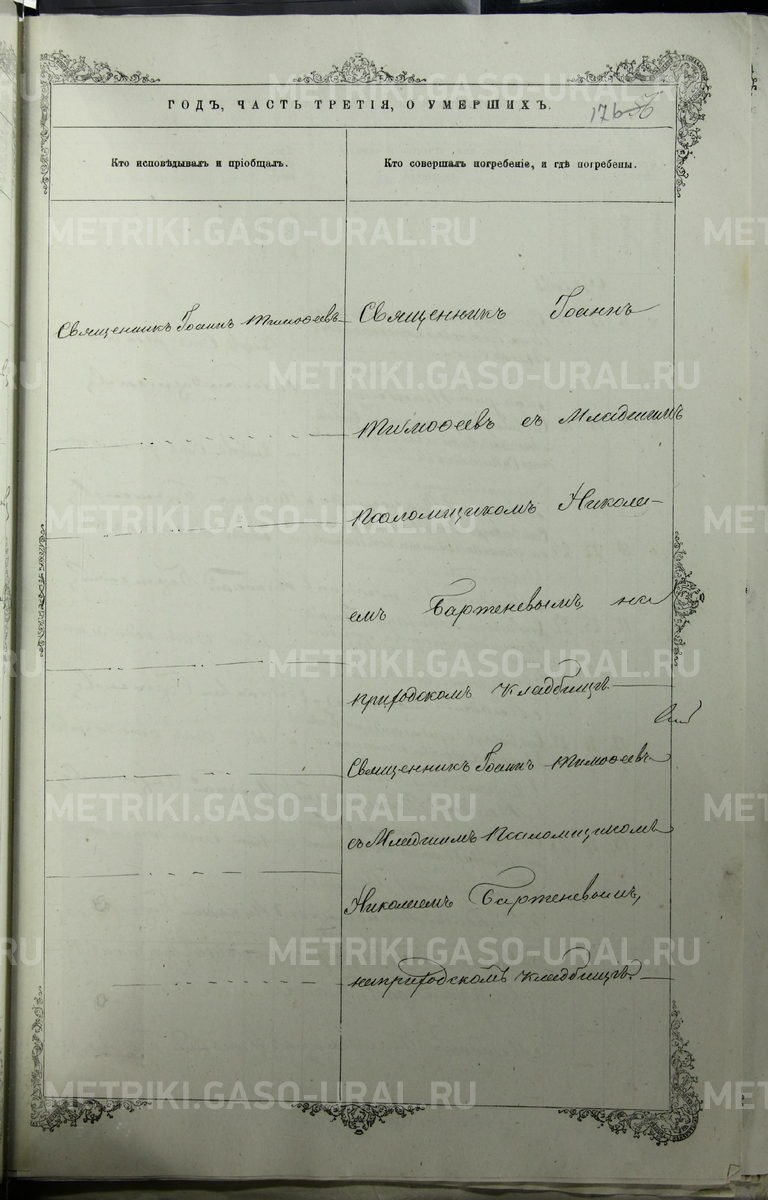 ГОДЪ, ЧАСТЬ ТРЕТІЯ, О УМЕРШИХЪ.
176
Кто исповѣдывалъ и пріобщалъ.
Кто совершалъ погребеніе, и гдѣ погребены.
Священникъ Іоаннъ Тимоѳеевъ
Священникъ Іоаннъ
Тимоѳеевъ съ Младшимъ
Псаломщикомъ Никола-
емъ Барженевымъ, на
приходскомъ кладбищѣ
Священникъ Іоаннъ Тимоѳеевъ
съ Младшимъ Псаломщикомъ
Николаемъ Барженевымъ,
на приходскомъ кладбищѣ.
METRIKI.GASO-URAL.RU